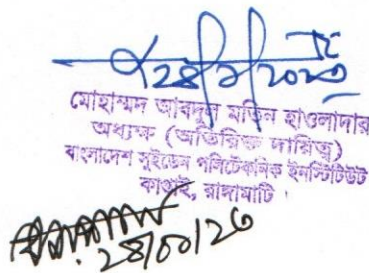 ২৪/১/২০২৩
মোহাম্মদ আবদুল মতিন হাওলাদার
অধ্যক্ষ (অতিরিক্ত দায়িত্ব)
বাংলাদেশ সুইডেন পলিটেকনিক ইনস্টিটিউট
কাপ্তাই, রাঙ্গামাটি